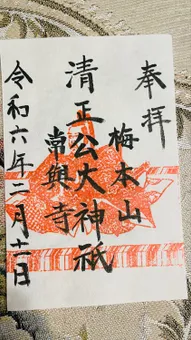 奉拝
梅木山
清正公大神祇
常興寺
令和六年二月十一日